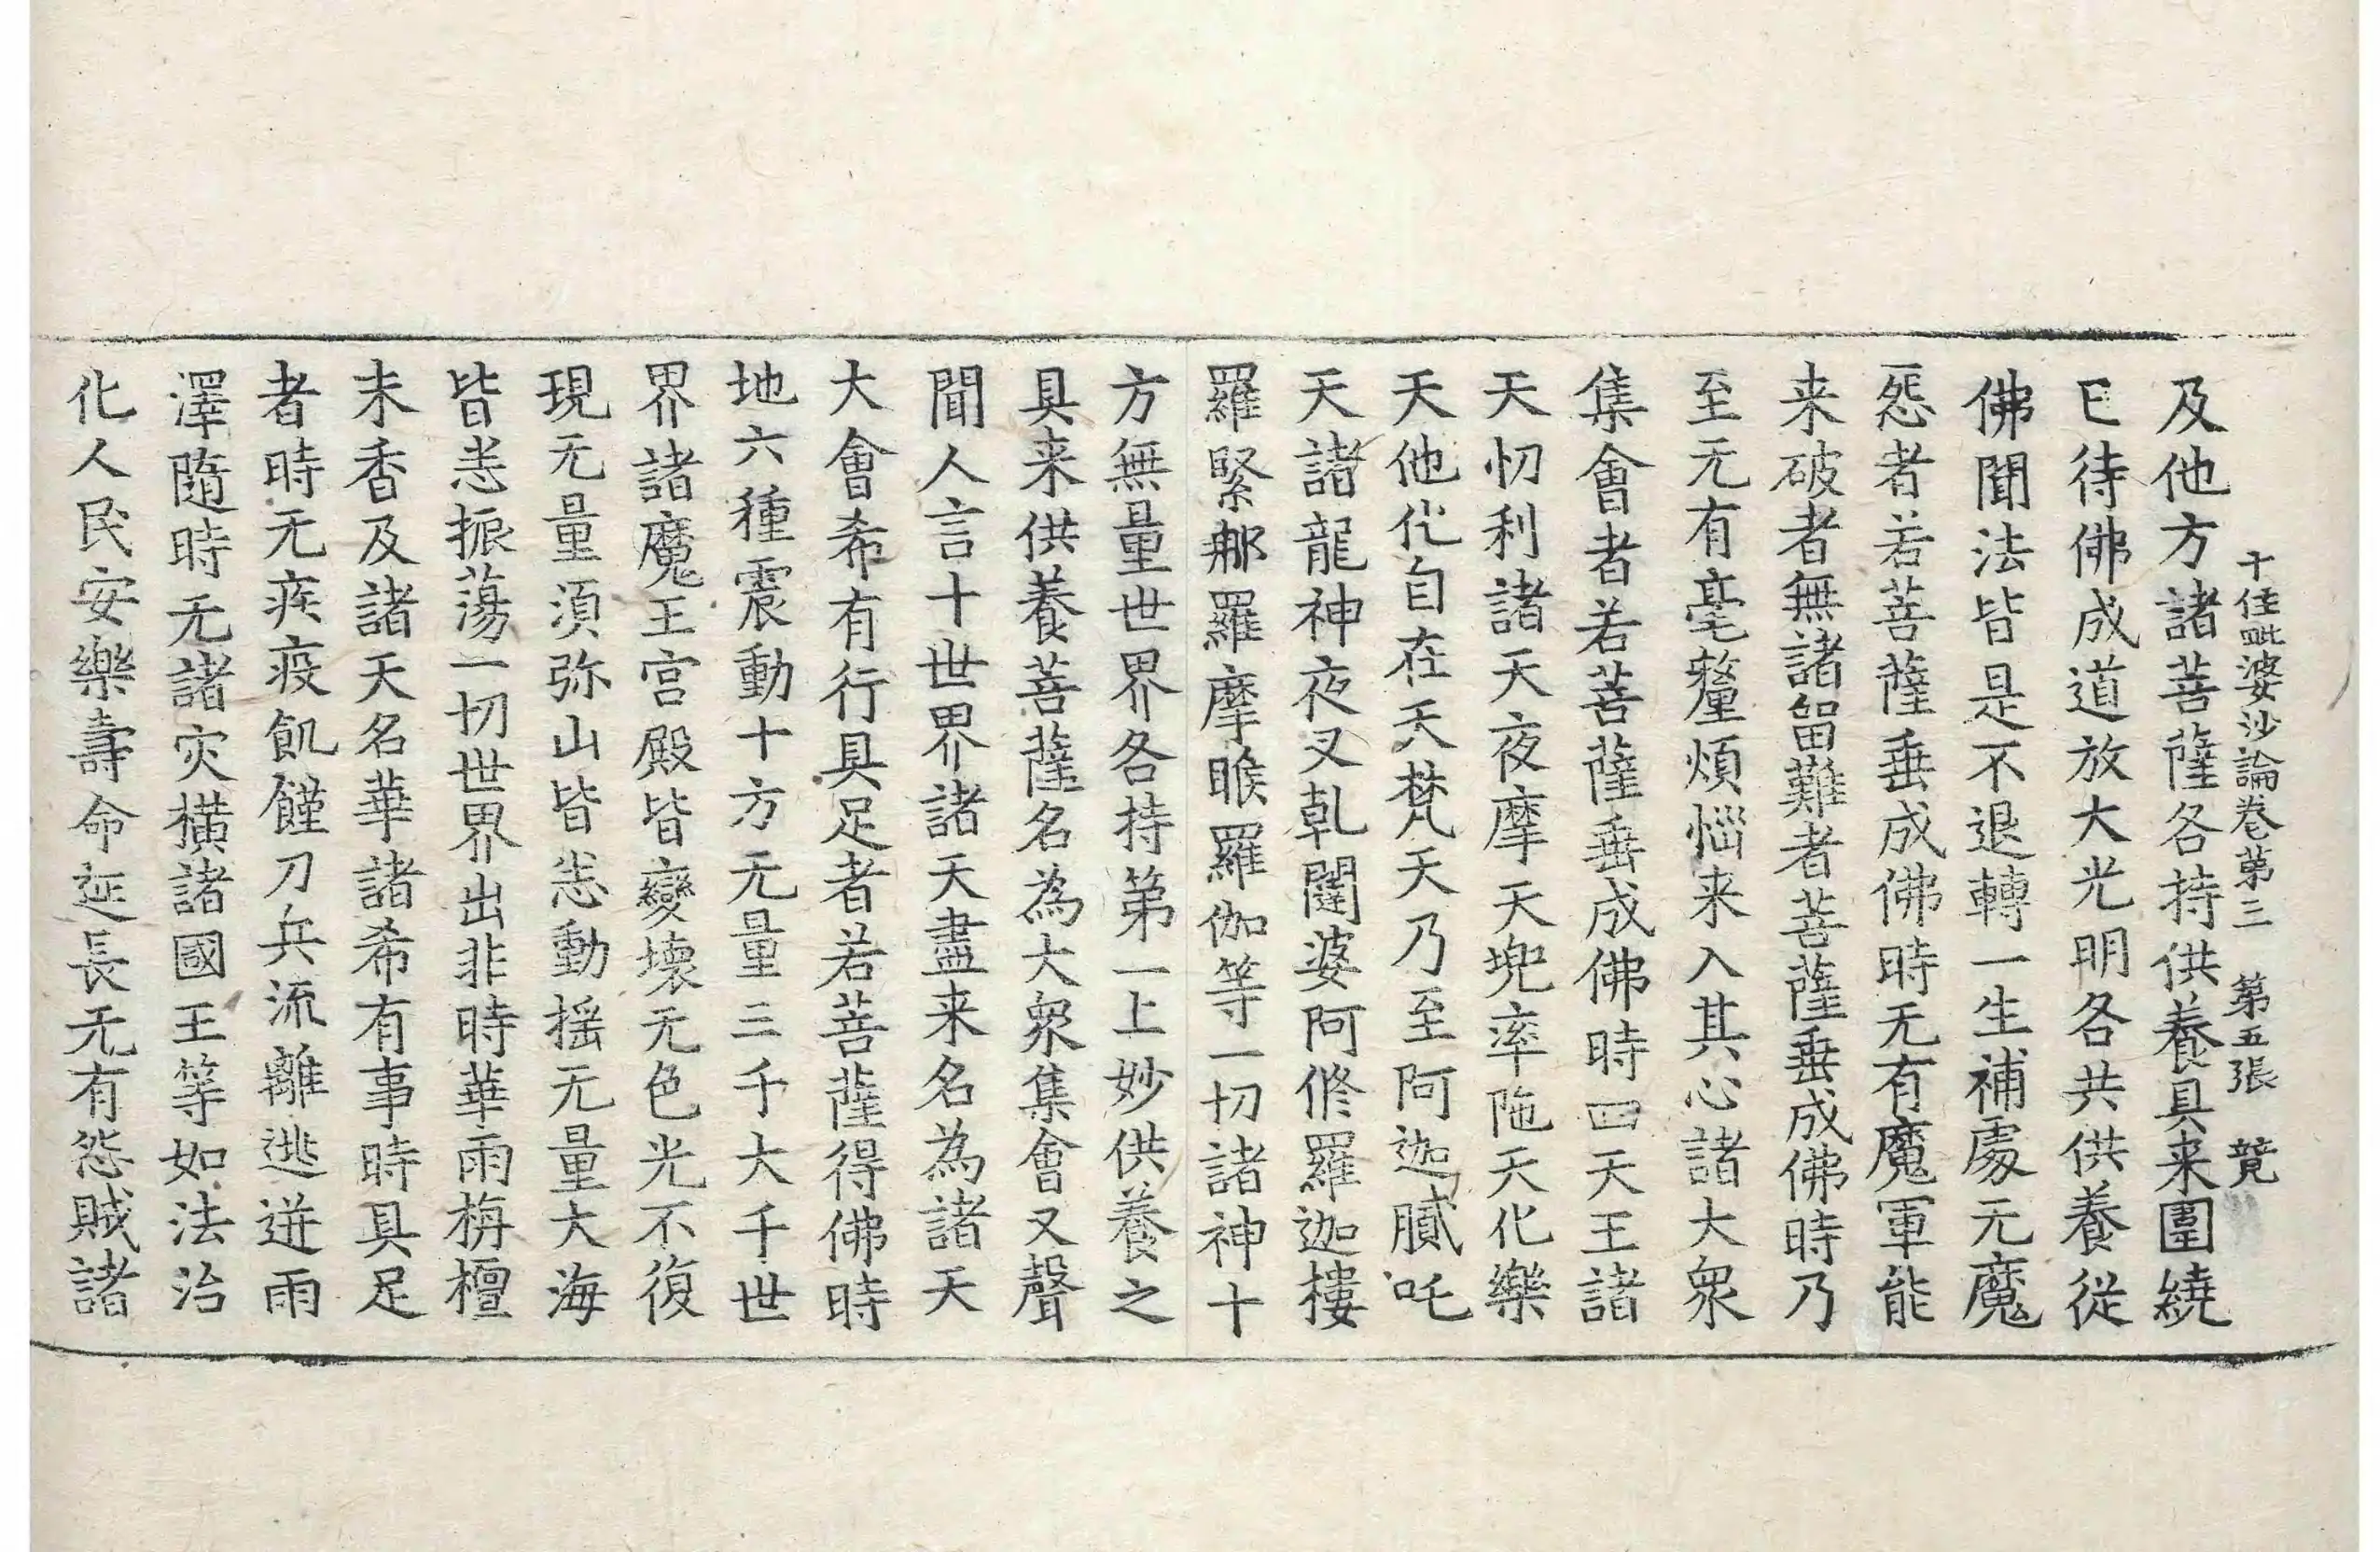 十住毗婆沙論卷第三　第五張　竟
及他方諸菩薩各持供養具来圍繞
已待佛成道放大光明各共供養從
佛聞法皆是不退轉一生補處无魔
怨者若菩薩垂成佛時无有魔軍能
来破者無諸留難者菩薩垂成佛時乃
至无有毫釐煩惱来入其心諸大衆
集會者若菩薩垂成佛時四天王諸
天忉利諸天夜摩天兜率陁天化樂
天他化自在天梵天乃至阿迦膩吒
天諸龍神夜叉乹闥婆阿脩羅迦樓
羅緊那羅摩睺羅伽等一切諸神十
方無量世界各持第一上妙供養之
具来供養菩薩名為大衆集會又聲
聞人言十世界諸天盡来名為諸天
大會希有行具足者若菩薩得佛時
地六種震動十方无量三千大千世
界諸魔王宫殿皆變壞无色光不復
現无量湏弥山皆悉動摇无量大海
皆悉振蕩一切世界出非時華雨栴檀
末香及諸天名華諸希有事時具足
者時无疾疫飢饉刀兵流離逃迸雨
澤隨時无諸灾橫諸國王等如法治
化人民安樂壽命延長无有怨賊諸